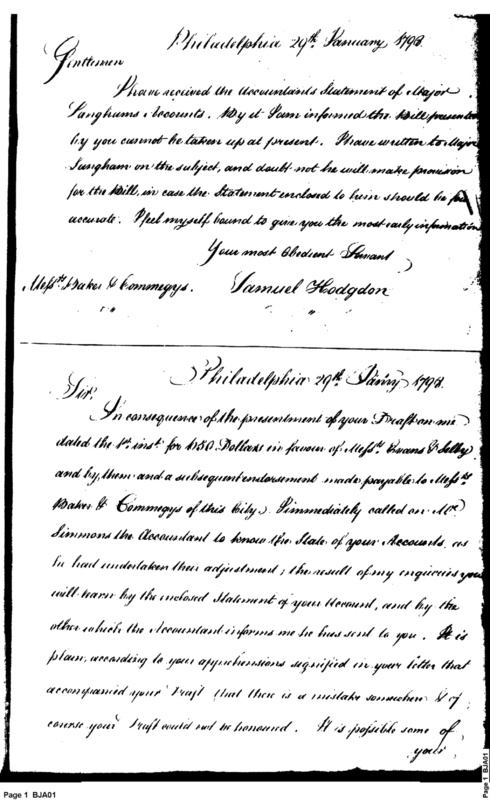 Philadelphia 29th January 1798.
Gentlemen
I have received the Accountants Statement of Major
Langhams Accounts. By it I am informed the Bill presented
by you cannot be taken up at present. I have written to Major
Langham on the subject, and doubt not he will make provision
for the Bill, in case the Statement enclosed to him should be
accurate. I feel myself bound to give you the most early information
Your most Obedient Servant
Messrs. Baker & Commegys. Samuel Hodgdon
Philadelphia 29th Janry 1798.
Sir.
In consequence of the presentment of your Draft on me
dated the 1st. inst. for 1150 Dollars in favour of Messrs. Evans & Selby
and by them and a subsequent endorsement made payable to Messrs
Baker & Commegys of this City. I immediately called on Mr
Simmons the Accountant to know the State of your Accounts, as
he had undertaken their adjustment; the result of my enquiries you
will learn by the inclosed Statement of your Account, and by the
other which the Accountant informs me he has sent to you. It is
plain, according to your apprehensions signified in your letter that
accompanied your Draft that there is a mistake somewhere & of
course your Draft could not be honoured. It is possible some of
your
Page 1 BJA01
Page 1 BJA01